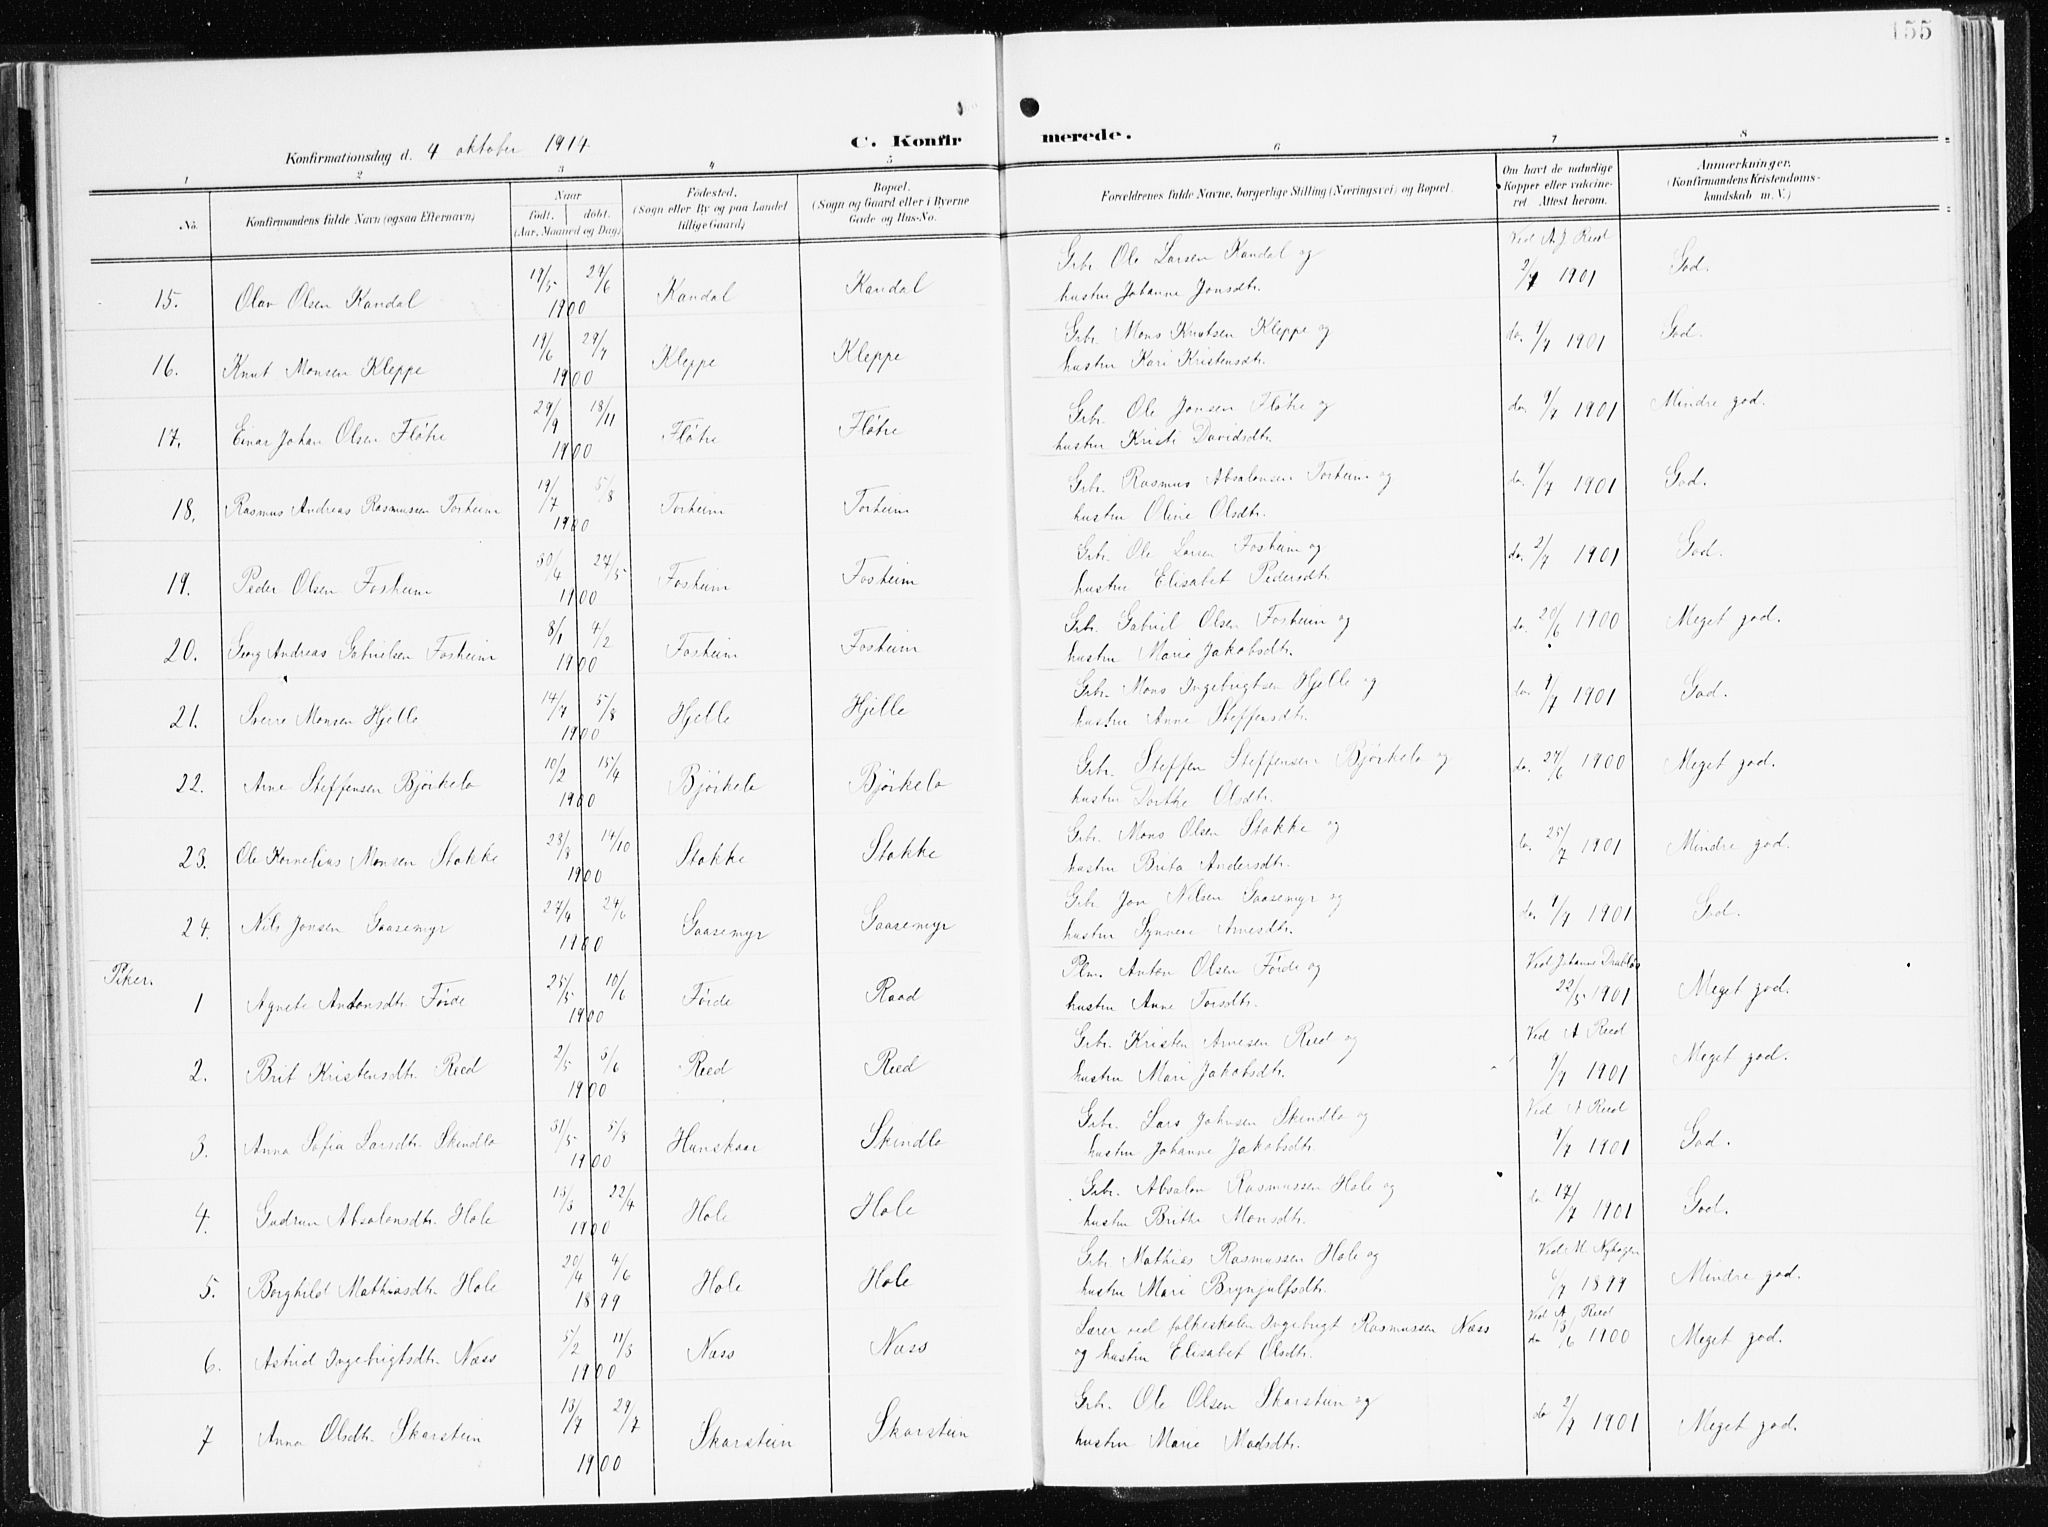 155
Konfirmationsdag d. 4 oktober 1914
C. Konfirmerede.
1 2 3 4 5 6 7 8
No. | Konfirmandens fulde Navn (ogsaa Efternavn) | Naar født. døbt. (Aar, Maaned og Dag) | Fødested. (Sogn eller By og paa Landet tillige Gaard) | Bopæl. (Sogn og Gaard eller i Byerne Gade og Hus-No. | Forældrenes fulde Navne, borgerlige Stilling (Næringsvei) og Bopæl. | Om havt de naturlige Kopper eller vaccineret. Attest herom. | Anmærkninger. (Konfirmandens Kristendomskundskab m. V.)
15. Olav Olsen Kandal 19/5 24/6 1900 Kandal Kandal Grbr. Ole Larsen Kandal og hustru Johanne Jonsdtr. Ved A. J. Reed 2/7 1901 God.
16. Knut Monsen Kleppe 19/6 29/7 1900 Kleppe Kleppe Grbr. Mons Knutsen Kleppe og hustru Kari Kristensdtr. do. 9/7 1901 God.
17. Einar Johan Olsen Fløtre 29/9 18/11 1900 Fløtre Fløtre Grbr. Ole Jonsen Fløtre og hustru Kristi Davidsdtr. do. 9/7 1901 Mindre god.
18. Rasmus Andreas Rasmussen Torheim 19/7 5/8 1900 Torheim Torheim Grbr. Rasmus Absalonsen Torheim og hustru Oline Olsdtr. do. 9/7 1901 God.
19. Peder Olsen Fosheim 30/4 27/5 1900 Fosheim Fosheim Grbr. Ole Larsen Fosheim og hustru Elisabet Pedersdtr. do. 2/7 1901 God.
20. Georg Andreas Gabrielsen Fosheim 8/1 4/2 1900 Fosheim Fosheim Grbr. Gabriel Olsen Fosheim og hustru Marie Jakobsdtr. do. 20/6 1900 Meget god.
21. Sverre Monsen Hjelle 14/7 5/8 1900 Hjelle Hjelle Grbr. Mons Ingebrigtsen Hjelle og hustru Anne Steffensdtr. do. 9/7 1901 God.
22. Arne Steffensen Bjørkelo 10/2 15/4 1900 Bjørkelo Bjørkelo Grbr. Steffen Steffensen Bjørkelo og hustru Dorthe Olsdtr. do. 27/6 1900 Meget god.
23. Ole Kornelius Monsen Stokke 23/8 14/10 1900 Stokke Stokke Grbr. Mons Olsen Stokke og hustru Brita Andersdtr. do. 25/7 1901 Mindre god.
24. Nils Jonsen Gaasemyr 27/4 24/6 1900 Gaasemyr Gaasemyr Grbr. Jon Nilsen Gaasemyr og hustru Synneve Arnesdtr. do. 9/7 1901 God.
Piker.
1 Agnete Antonsdtr. Førde 25/5 10/6 1900 Førde Raad Plm. Anton Olsen Førde og hustru Anne Torsdtr. Ved Johanne Drabløs 22/5 1901 Meget god.
2. Brit Kristensdtr. Reed 2/5 3/6 1900 Reed Reed Grbr. Kristen Arnesen Reed og hustru Mari Jakobsdtr. Ved A Reed 9/7 1901 Meget god.
3. Anna Sofia Larsdtr. Skindlo 31/5 5/8 1900 Hunskaar Skindlo Grbr. Lars Johnsen Skindlo og hustru Johanne Jakobsdtr. Ved A Reed 9/7 1901 God.
4. Gudrun Absalonsdtr. Hole 13/3 22/4 1900 Hole Hole Grbr. Absalon Rasmussen Hole og hustru Brithe Monsdtr. do 17/7 1901 God.
5. Borghild Mathiasdtr. Hole 20/4 4/6 1899 Hole Hole Grbr. Mathias Rasmussen Hole og hustru Mari Brynjulfsdtr. Ved M. Nyhagen 6/7 1899 Mindre god.
6. Astrid Ingebrigtsdtr. Næss 5/2 11/3 1900 Næss Næss Lærer ved folkeskolen Ingebrigt Rasmussen Næss og hustru Elisabet Olsdtr. Ved A. Reed do 13/6 1900 Meget god.
7 Anna Olsdtr. Skarstein 13/7 29/7 1900 Skarstein Skarstein Grbr. Ole Olsen Skarstein og hustru Marie Madsdtr. do 2/7 1901 Meget god.